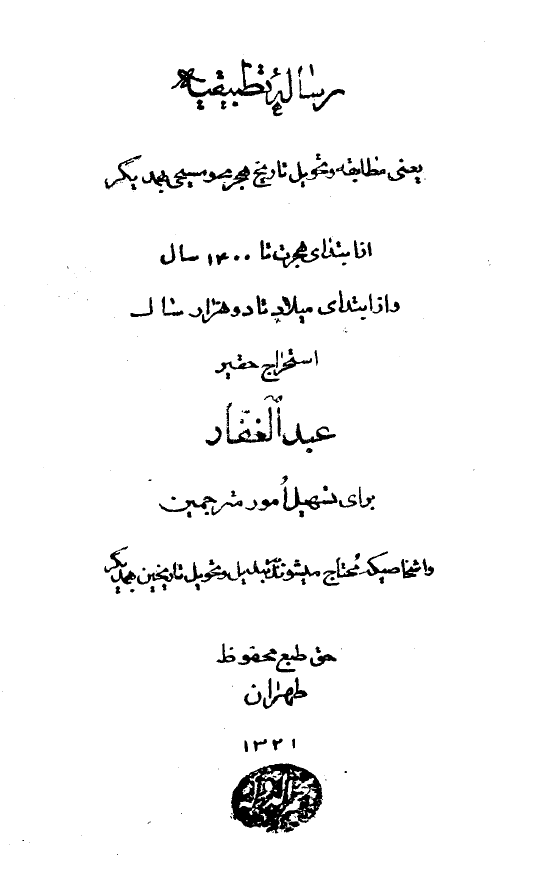 رسالهٔ تطبیقیه
یعنی مطابقه و تحویل تاریخ هجری و مسیحی بهمدیگر
از ابتدای هجرت تا ۱۴۰۰ سال
و از ابتدای میلاد تا دو هزار سال
استخراج حقیر
عبدالغفار
برای تسهیل اُمور مترجمین
و اشخاصیکه مُحتاج میشوند بتبدیل و تحویل تاریخین بهمدیگر
حق طبع محفوظ
طهران
۱۳۲۱
نجم الدوله